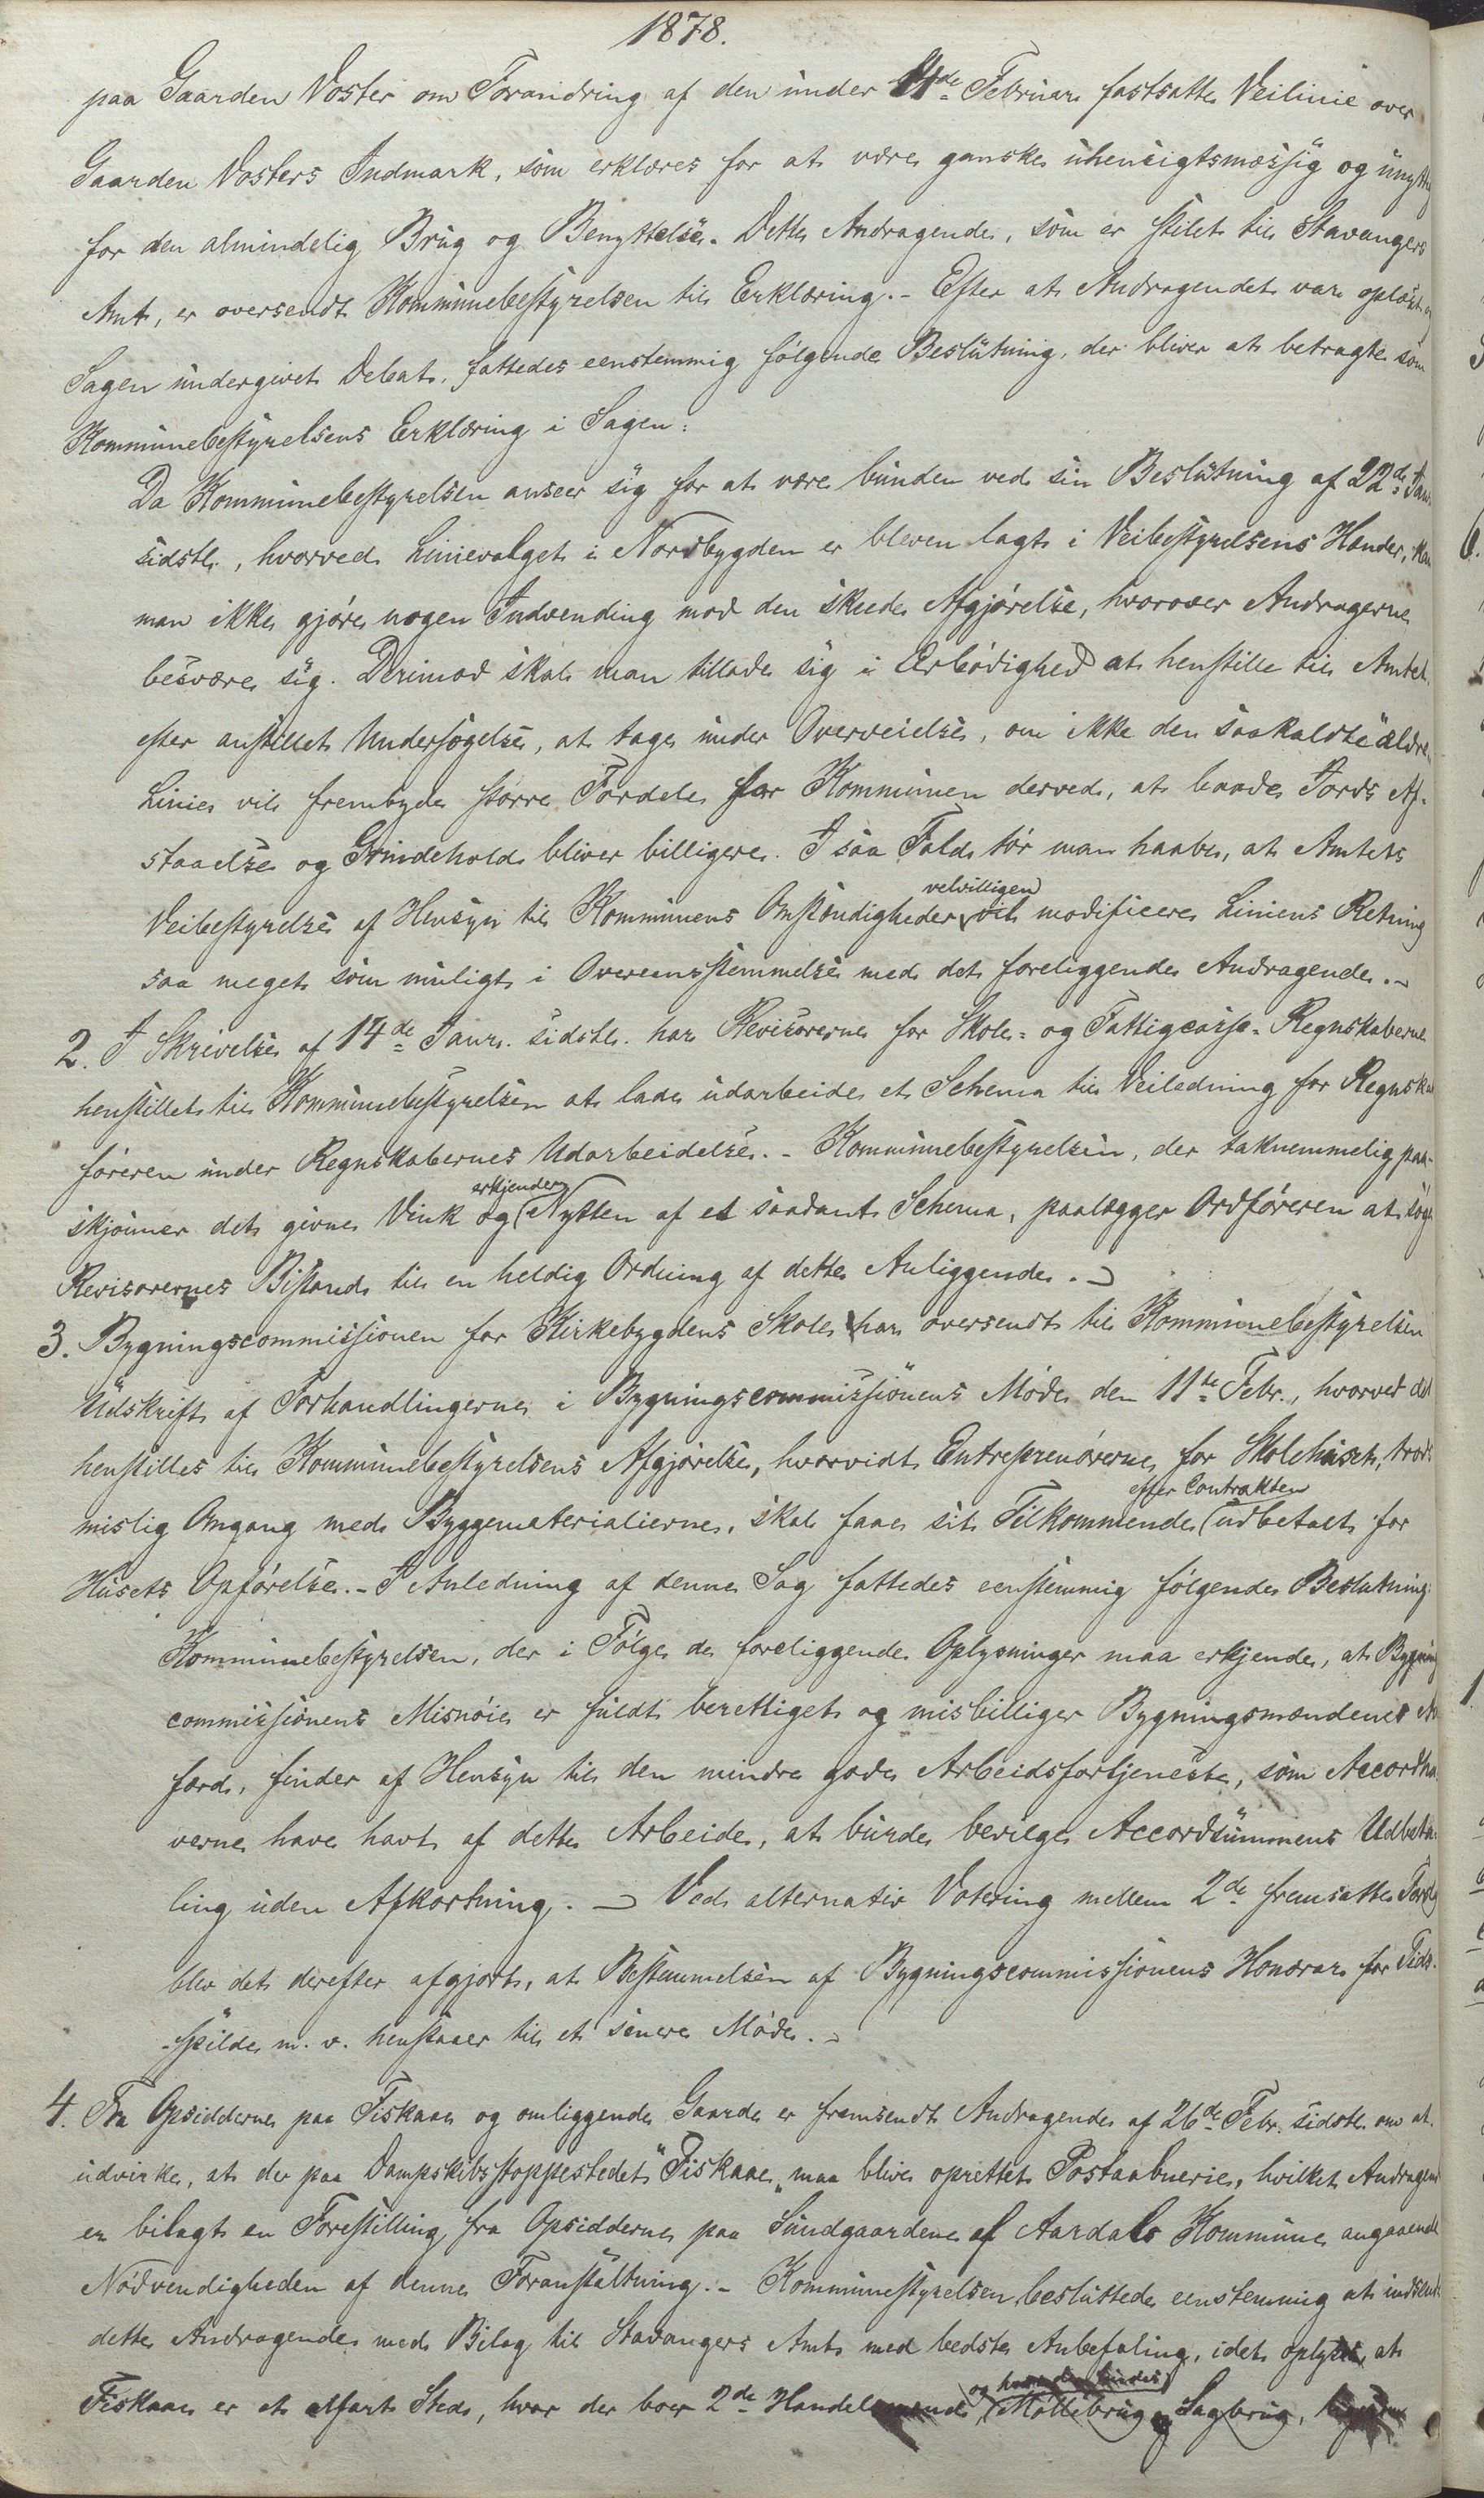 1878.
paa Gaarden Voster om Forandring af den under 11te Februar fastsatte Veilinie over
Gaarden Vosters Indmark, som erklæres for at være ganske uhensigtsmæssig og unyttig
for den almindelig Brug og Benyttelse. Dette Andragende, som er stilet til Stavangers
Amt, er oversendt Kommunebestyrelsen til Erklæring. - Efter at Andragendet var oplæst og
Sagen undergivet Debat, fattedes eenstemmig følgende Beslutning, der bliver at betragte som
Kommunebestyrelsens Erklæring i Sagen:
Da Kommunebestyrelsen anseer sig for at være bunden ved sin Beslutning af 22de Janr.
sidstl., hvorved Linievalget i Nordbygden er bleven lagt i Veibestyrelsens Hænder, kan
man ikke gjøre nogen Indvending mod den skeede Afgjørelse, hvorover Andragerne
besvære sig. Derimod skal man tillade sig i Ærbødighed at henstille til Amtet
efter anstillet Undersøgelse, at tage under Overveielse, om ikke den saakaldte ældre
Linie vil frembyde større Fordele for Kommunen derved, at baade Jords Af-
staaelse og Grindehold bliver billigere. I saa Fald tør man haabe, at Amtets
Veibestyrelse af Hensyn til Kommunens Omstændigheder velvilligen vil modificere Liniens Retning
saa meget som muligt i Overeensstemmelse med det foreliggende Andragende. -
2. I Skrivelse af 14de Janr. sidstl. har Revisorerne for Skole- og Fattigcasse-Regnskaberne
henstillet til Kommunebestyrelsen at lade udarbeide et Schema til Veiledning for Regnskabs
føreren under Regnskabernes Udarbeidelse. - Kommunebestyrelsen, der taknemmelig paa-
skjønner det givne Vink og erkjender Nytten af et saadant Schema, paalægger Ordføreren at søge
Revisorernes Bistand til en heldig Ordning af dette Anliggende. -
3. Bygningscommissionen for Kirkebygdens Skole har oversendt til Kommunebestyrelsen
Udskrift af Forhandlingerne i Bygningscommissionens Møde den 11te Febr., hvorved det
henstilles til Kommunebestyrelsens Afgjørelse, hvorvidt Entreprenørerne for Skolehuset, trods
mislig Omgang med Byggematerialierne, skal faae sit Tilkommende efter Contrakten udbetalt for
Husets Opførelse. - I Anledning af denne Sag fattedes eenstemmig følgende Beslutning:
Kommunebestyrelsen, der i Følge de foreliggende Oplysninger maa erkjende, at Bygnings
commissionens Misnøie er fuldt berettiget og misbilliger Bygningsmændenes At
færd, finder af Hensyn til den mindre gode Arbeidsfortjeneste, som Accordha-
verne have havt af dette Arbeide, at burde bevilge Accordsummens Udbeta-
ling uden Afkortning. - Ved alternativ Votering mellem 2de fremsatte Forslag
blev det derefter afgjort, at Bestemmelsen af Bygningscommissionens Honorar for Tids-
spilde m. v. henstaaer til et senere Møde. -
4. Fra Opsidderne paa Fiskaae og omliggende Gaarde er fremsendt Andragende af 26de Febr. sidstl. om at
udvirke, at der paa Dampskibsstoppestedet "Fiskaae" maa blive oprettet Postaabnerie, hvilket Andragende
er bilagt en Forestilling fra Opsidderne paa Sundgaardene af Aardals Kommune angaaende
Nødvendigheden af denne Foranstaltning. - Kommunestyrelsen besluttede eenstemmig at indsende
dette Andragende med Bilag til Stavangers Amt med bedste Anbefaling, idet oplyses, at
Fiskaae er et alfart Sted, hvor der boer 2de Handelsmænd og Møllebrug og Sagbrug,